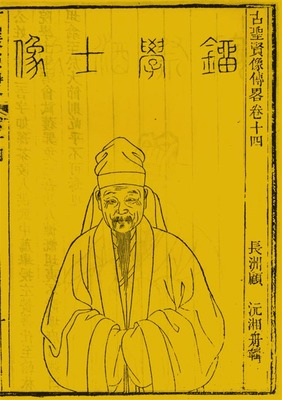 古聖賢像傳畧卷十四
長洲顧 沅湘舟輯
鎦學士像